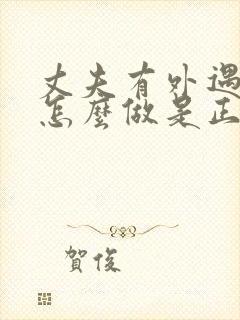 丈夫有外遇
怎麼做是正
賀俊